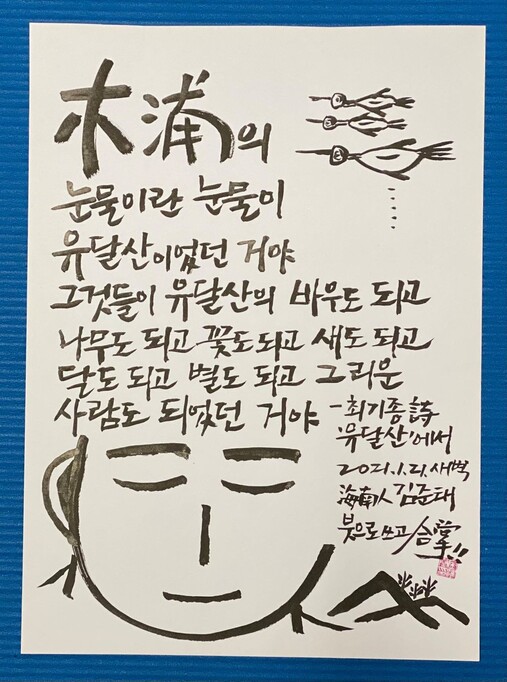 木浦의
눈물이란 눈물이
유달산이었던 거야
그것들이 유달산의 바우도 되고
나무도 되고 꽃도 되고 새도 되고
달도 되고 별도 되고 그리운
사람도 되었던 거야
-최기종 詩
'유달산'에서
2021.1.21. 새벽
海南人 김준태
붓으로 쓰고/合掌!!